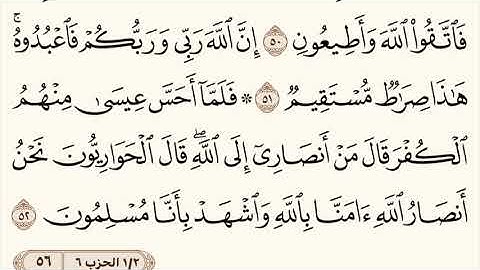 فَاتَّقُوا۟ اللَّهَ وَأَطِيعُونِ ٥٠ إِنَّ اللَّهَ رَبِّى وَرَبُّكُمْ فَاعْبُدُوهُ ۚ
هَـٰذَا صِرَٰطٌ مُّسْتَقِيمٌ ٥١ ۞ فَلَمَّآ أَحَسَّ عِيسَىٰ مِنْهُمُ
الْكُفْرَ قَالَ مَنْ أَنصَارِىٓ إِلَى اللَّهِ ۖ قَالَ الْحَوَارِيُّونَ نَحْنُ
أَنصَارُ اللَّهِ ءَامَنَّا بِاللَّهِ وَاشْهَدْ بِأَنَّا مُسْلِمُونَ ٥٢
١/٢ الحزب ٦ ٥٦